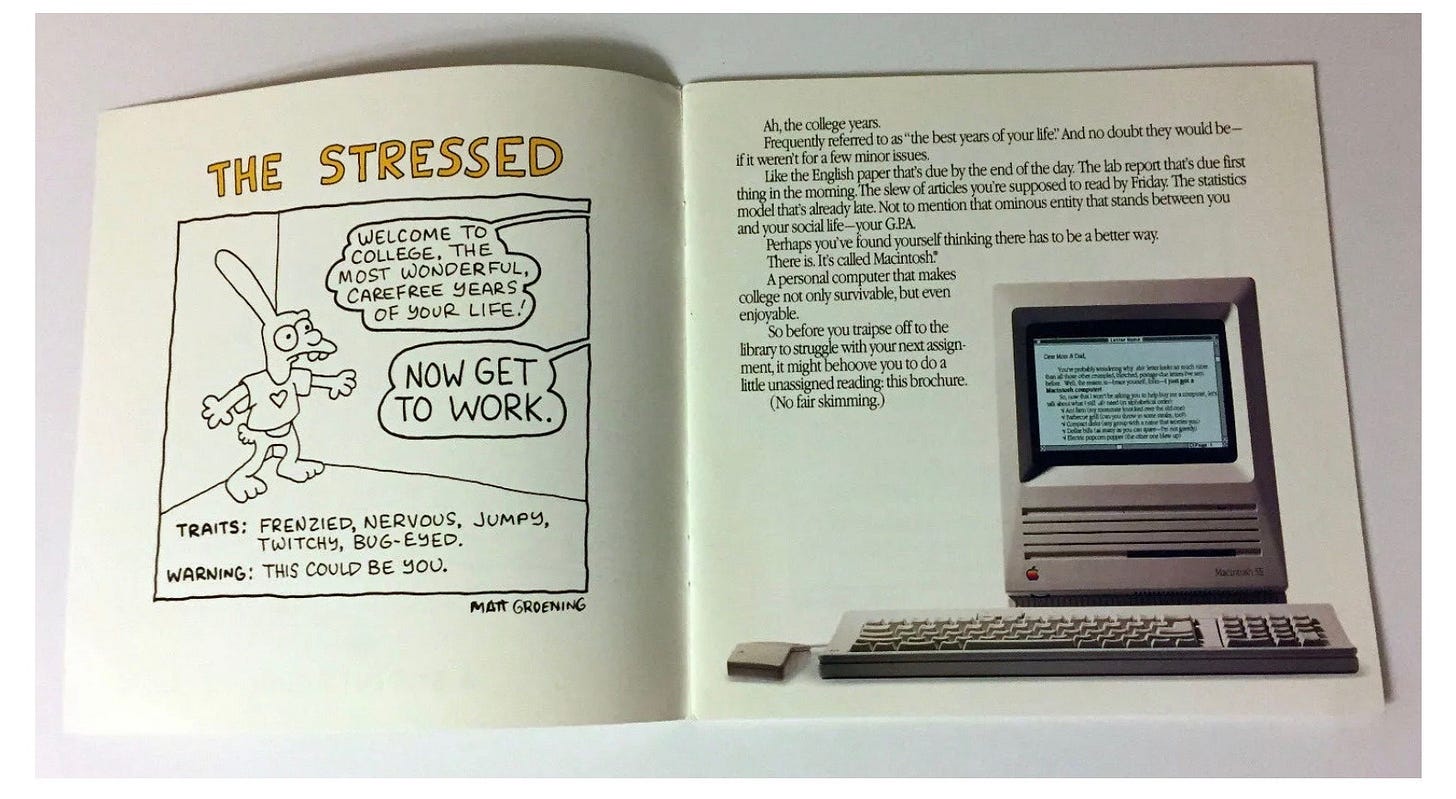 THE STRESSED
WELCOME TO
COLLEGE, THE
MOST WONDERFUL,
CAREFREE YEARS
OF YOUR LIFE!
NOW GET
TO WORK.
TRAITS: FRENZIED, NERVOUS, JUMPY,
TWITCHY, BUG-EYED.
WARNING: THIS COULD BE YOU.
MATT GROENING
Ah, the college years.
Frequently referred to as “the best years of your life.” And no doubt they would be—
if it weren’t for a few minor issues.
Like the English paper that’s due by the end of the day. The lab report that’s due first
thing in the morning. The slew of articles you’re supposed to read by Friday. The statistics
model that’s already late. Not to mention that ominous entity that stands between you
and your social life—your G.P.A.
Perhaps you’ve found yourself thinking there has to be a better way.
There is. It’s called Macintosh.®
A personal computer that makes
college not only survivable, but even
enjoyable.
So before you traipse off to the
library to struggle with your next assign-
ment, it might behoove you to do a
little unassigned reading: this brochure.
(No fair skimming.)
Dear Mom & Dad,
You're probably wondering why this letter looks so much nicer
than all those other crumpled, blotched, postage-due letters I've sent
before. Well, the reason is—brace yourself, folks—I just got a
Macintosh computer!
So, now that I won't be asking you to help buy me a computer, let's
talk about what I still do need (in alphabetical order):
√ Ant farm (my roommate knocked over the old one)
√ Barbecue grill (can you throw in some steaks, too?)
√ Compact disks (any group with a name that worries you)
√ Dollar bills (as many as you can spare—I'm not greedy)
√ Electric popcorn popper (the other one blew up)
Macintosh SE